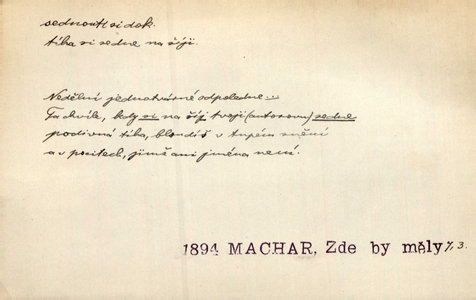 sednouti si dok.
tíha si sedne na šíji.
Nedělní jednotvárné odpoledne...
Ta chvíle, kdy si na šíji tvoji (autorovu) sedne
podivná tíha, bloudíš v tupém snění
a v pocitech, jimž ani jména není.
1894 MACHAR, Zde by měly 7, 3.